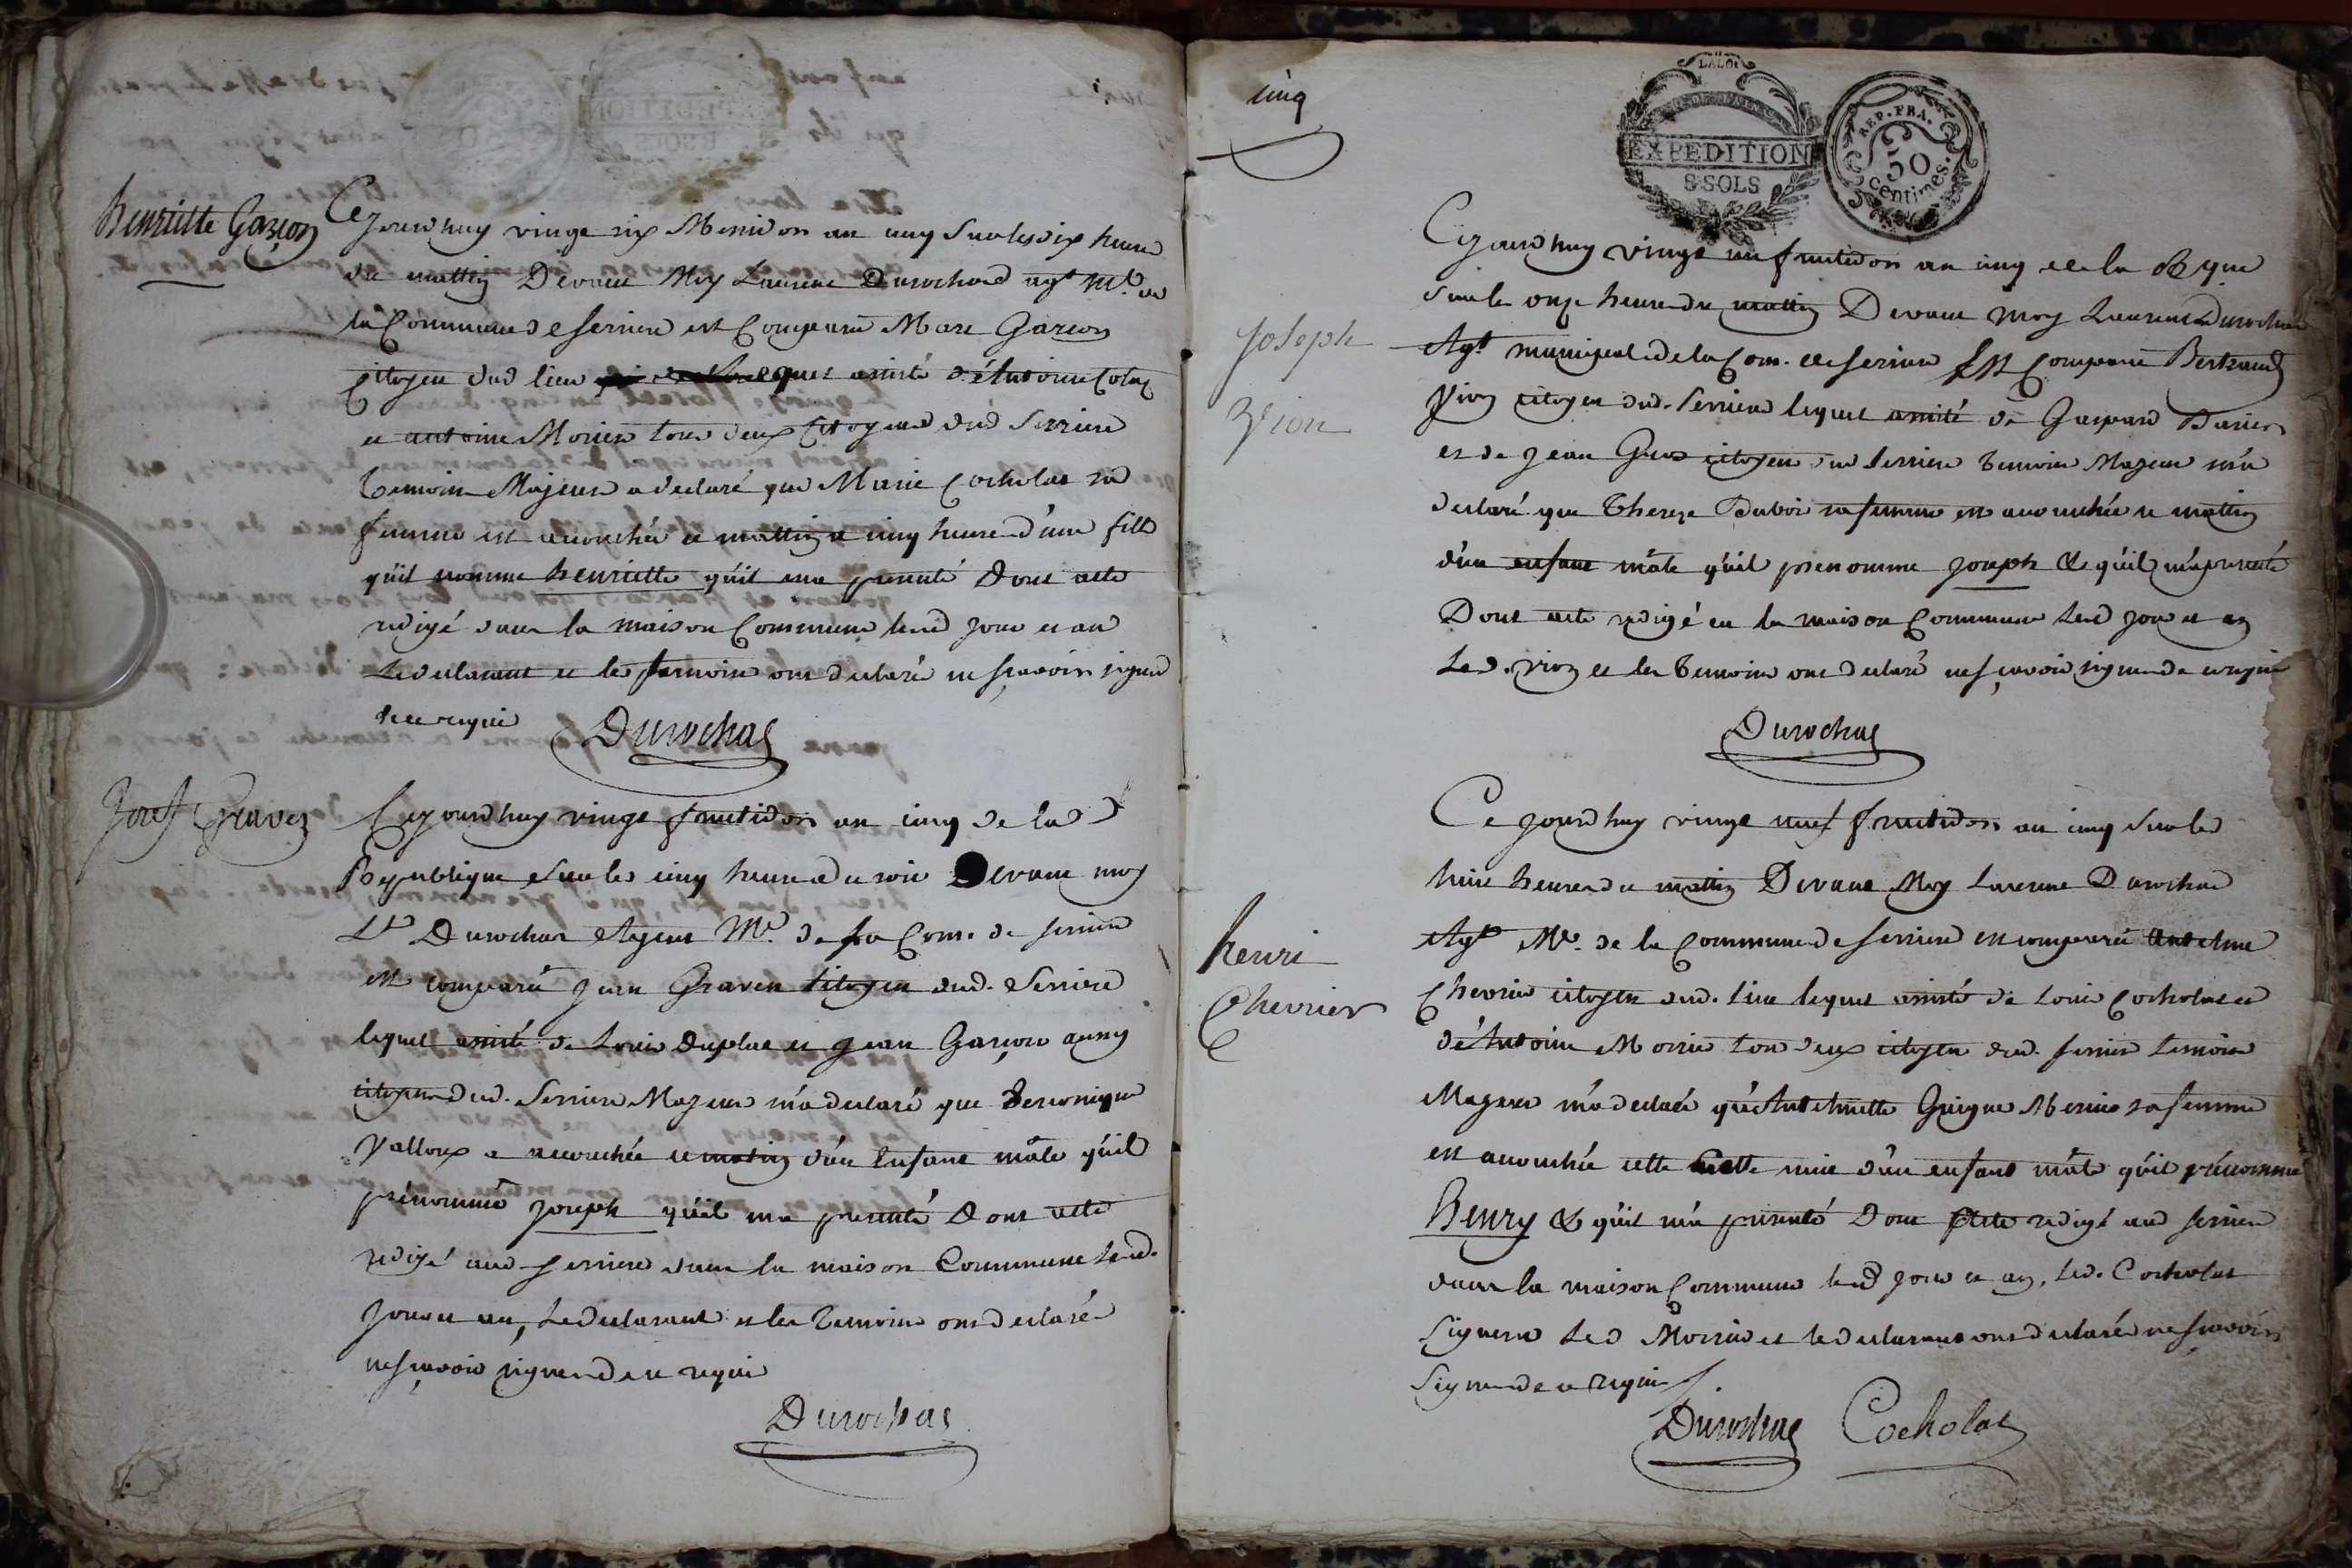 Henriette Garçon
Cejourdhuy vingt six Messidor an cinq sur les dix heure
du mattin Devant Moy Laurent Durochas agt. Mal. de
la Commune de Serriere est Comparu Marc Garcon
Citoyen dud lieu lequel assisté d'Antoine Colas
et antoine Morier tous deux Citoyens dud Serriere
temoins Majeurs a declaré que Marie Cocholat sa
femme est accouchée ce mattin a cinq heure d'une fille
qu'il nomme henriette qu'il ma presenté Dont acte
redigé dans la maison Commune lesd jour et an
Le declarant et les temoins ont declaré ne sçavoir signer
de ce requis
Durochas
Josef Graven
Cejourdhuy vingt fructidor an cinq de la
Republique sur les cinq heure du soir Devant moy
Lt Durochas Agent Mal. de la Com. de serriere
est comparu Jean Graven Citoyen dud. Serriere
lequel assisté de Louis Duplat et Jean Garçon aussy
citoyens dud. Serriere Majeurs m'a declaré que Veronique
Valloux a accouchée ce matin d'un Enfant mâle qu'il
prénommé Joseph qu'il ma presenté Dont acte
redigé aud Serriere dans la maison Commune lesd.
Jour et an, Le declarant et les Temoins ont declarés
ne sçavoir signer de ce requis
Durochas
cinq
LA LOI
EXPEDITION
8 SOLS
REP. FRA.
50
centimes.
Joseph
Vion
Cejourdhuy vingt un fructidor an cinq de la Rque
sur les onze heure du mattin Devant Moy Laurent Durochas
Agt. municipal de la Com. de Serriere Est Comparu Bertrand
Vion citoyen dud. Serriere lequel assisté de Gaspard
et de Jean Gros citoyens dud Serriere temoins Majeurs m'a
declaré que Thereze Dubois sa femme est accouchée ce mattin
d'un enfant mâle qu'il prenomme Joseph & qu'il m'a presenté
Dont acte redigé en la maison Commune Lesd jour et an
Led. Vion et les Temoins ont declaré ne sçavoir signer de ce requis
Durochas
henri
Chevrier
Ce Jourdhuy vingt neuf fructidor an cinq sur les
huit heures du mattin Devant Moy Laurent Durochas
Agt. Mal. de la Commune de Serriere est comparu Antelme
Chevrier citoyen dud. lieu lequel assisté de Louis Cocholat et
d'Antoine Morier tous deux citoyens dud. Serriere temoins
Majeurs m'a declaré qu'Antelmette sa femme
est accouchée cette nuit d'un enfant mâle qu'il prénomme
Henry & qu'il m'a presenté Dont Acte redigé aud Serriere
dans la maison Commune lesd jour et an, Led. Cocholat
Signera Led Morier et le declarant ont declarés ne sçavoir
Signer de ce requis
Durochas Cocholat